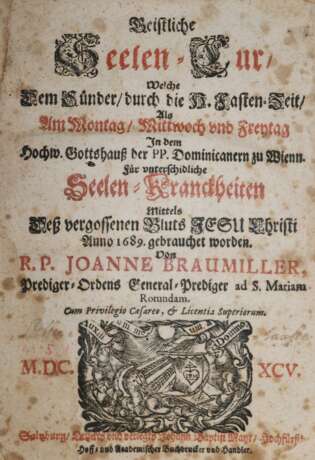 Geistliche
Seelen-Cur/
Welche
Dem Sünder/ durch die H. Fasten-Zeit/
Als
Am Montag/ Mittwoch vnd Freytag
In dem
Hochw. Gottshauß der PP. Dominicanern zu Wienn.
Für vnterschidliche
Seelen-Kranckheiten
Mittels
Deß vergossenen Bluts JESU Christi
Anno 1689. gebrauchet worden.
Von
R. P. JOANNE BRAUMILLER,
Prediger-Ordens General-Prediger ad S. Mariam
Rotundam.
Cum Privilegio Cesareo, & Licentia Superiorum.
M.DC. XCV.
Saltzburg/ Druckts und verlegts Johann Baptist Mayr/ Hochfürstl.
Hoff- und Academischer Buchdrucker und Handler.